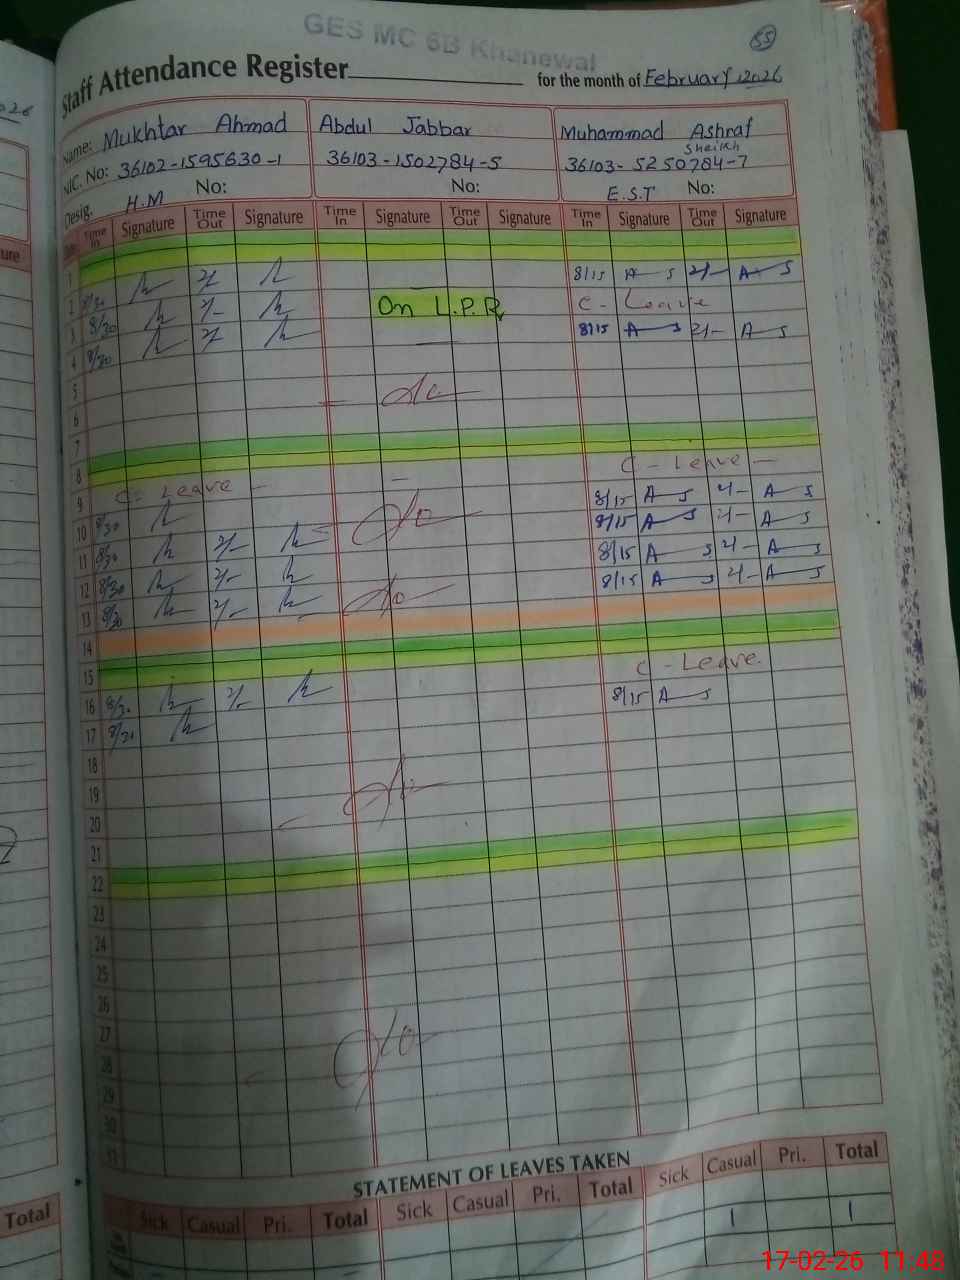 GES MC 6B Khanewal
55
Staff Attendance Register for the month of February 2026
Name: Mukhtar Ahmad Abdul Jabbar Muhammad Ashraf Sheikh
NIC. No: 36102-1595630-1 36103-1502784-5 36103-5250784-7
Desig. H.M No: No: E.S.T No:
Time In Signature Time Out Signature Time In Signature Time Out Signature Time In Signature Time Out Signature
1
2 8/30 2/- 8/15 A S 2/- A S
3 8/30 2/- On L.P.R C - Leave
4 8/30 2/- 8/15 A S 2/- A S
5
6
7
8
9 C - Leave - C - Leave -
10 8/30 8/15 A S 2/- A S
11 8/30 2/- 8/15 A S 2/- A S
12 8/30 2/- 8/15 A S 2/- A S
13 8/30 2/- 8/15 A S 2/- A S
14
15
16 8/30 2/- C - Leave.
17 8/30 8/15 A S
18
19
20
21
22
23
24
25
26
27
28
29
30
31
STATEMENT OF LEAVES TAKEN
Sick Casual Pri. Total Sick Casual Pri. Total Sick Casual Pri. Total
1 1
Total
17-02-26 11:48